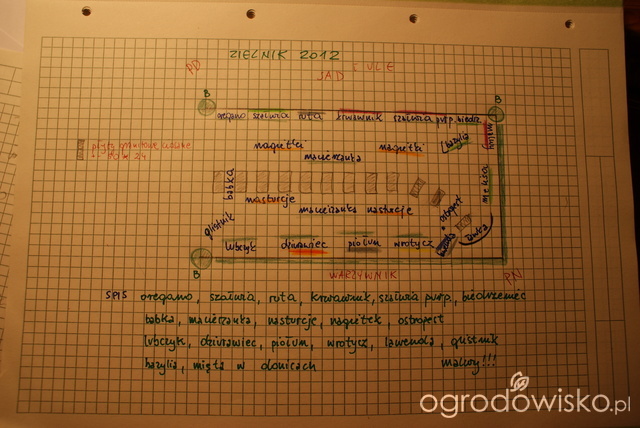 ZIELNIK 2012
PD
SAD I ULE
B
B
oregano szałwia ruta krwawnik szałwia purp. biedrz.
maliny
nagietki nagietki bazylia
macierzanka
płyty
40 x 24
babka
melisa
nasturcje
macierzanka nasturcje
ostropest
glistnik
lubczyk dziurawiec piołun wrotycz
B
WARZYWNIK
PN
SPIS oregano, szałwia, ruta, krwawnik, szałwia purp., biedrzeniec
babka, macierzanka, nasturcje, nagietek, ostropest
lubczyk, dziurawiec, piołun, wrotycz, lawenda, glistnik
bazylia, mięta w donicach maliny!!!
ogrodowisko.pl